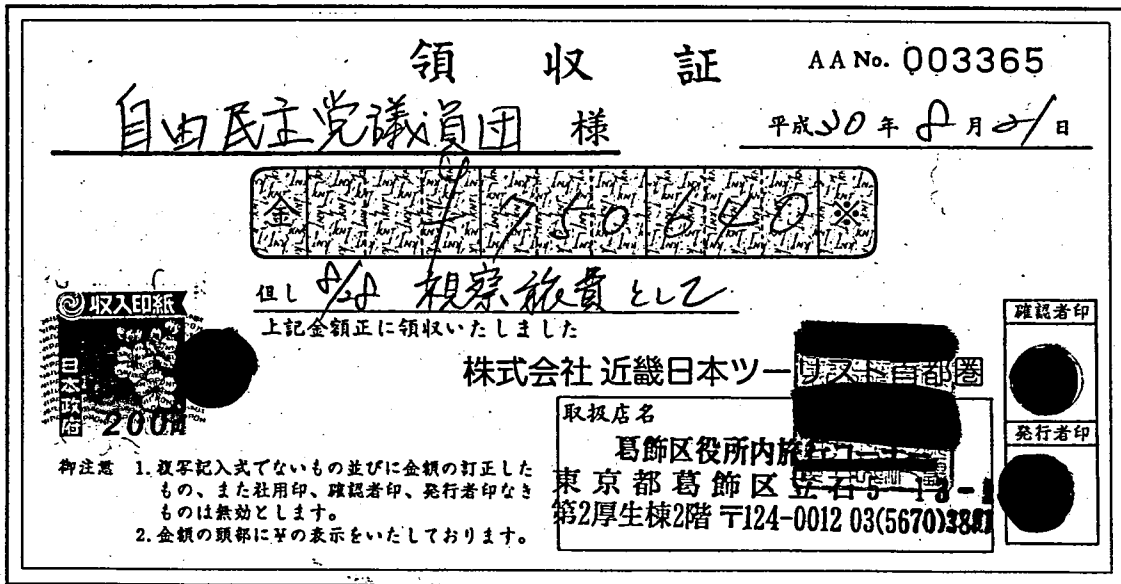 領収証 AA No. 003365
自由民主党議員団 様 平成30年8月21日
金 ¥750640※
但し 8/28 視察旅費として
上記金額正に領収いたしました
収入印紙
日本政府
200円
株式会社 近畿日本ツーリスト首都圏
確認者印
発行者印
取扱店名
葛飾区役所内旅行コーナー
東京都葛飾区立石5-13-
第2厚生棟2階 〒124-0012 03(5670)
御注意 1. 複写記入式でないもの並びに金額の訂正した
もの、また社用印、確認者印、発行者印なき
ものは無効とします。
2. 金額の頭部に¥の表示をいたしております。